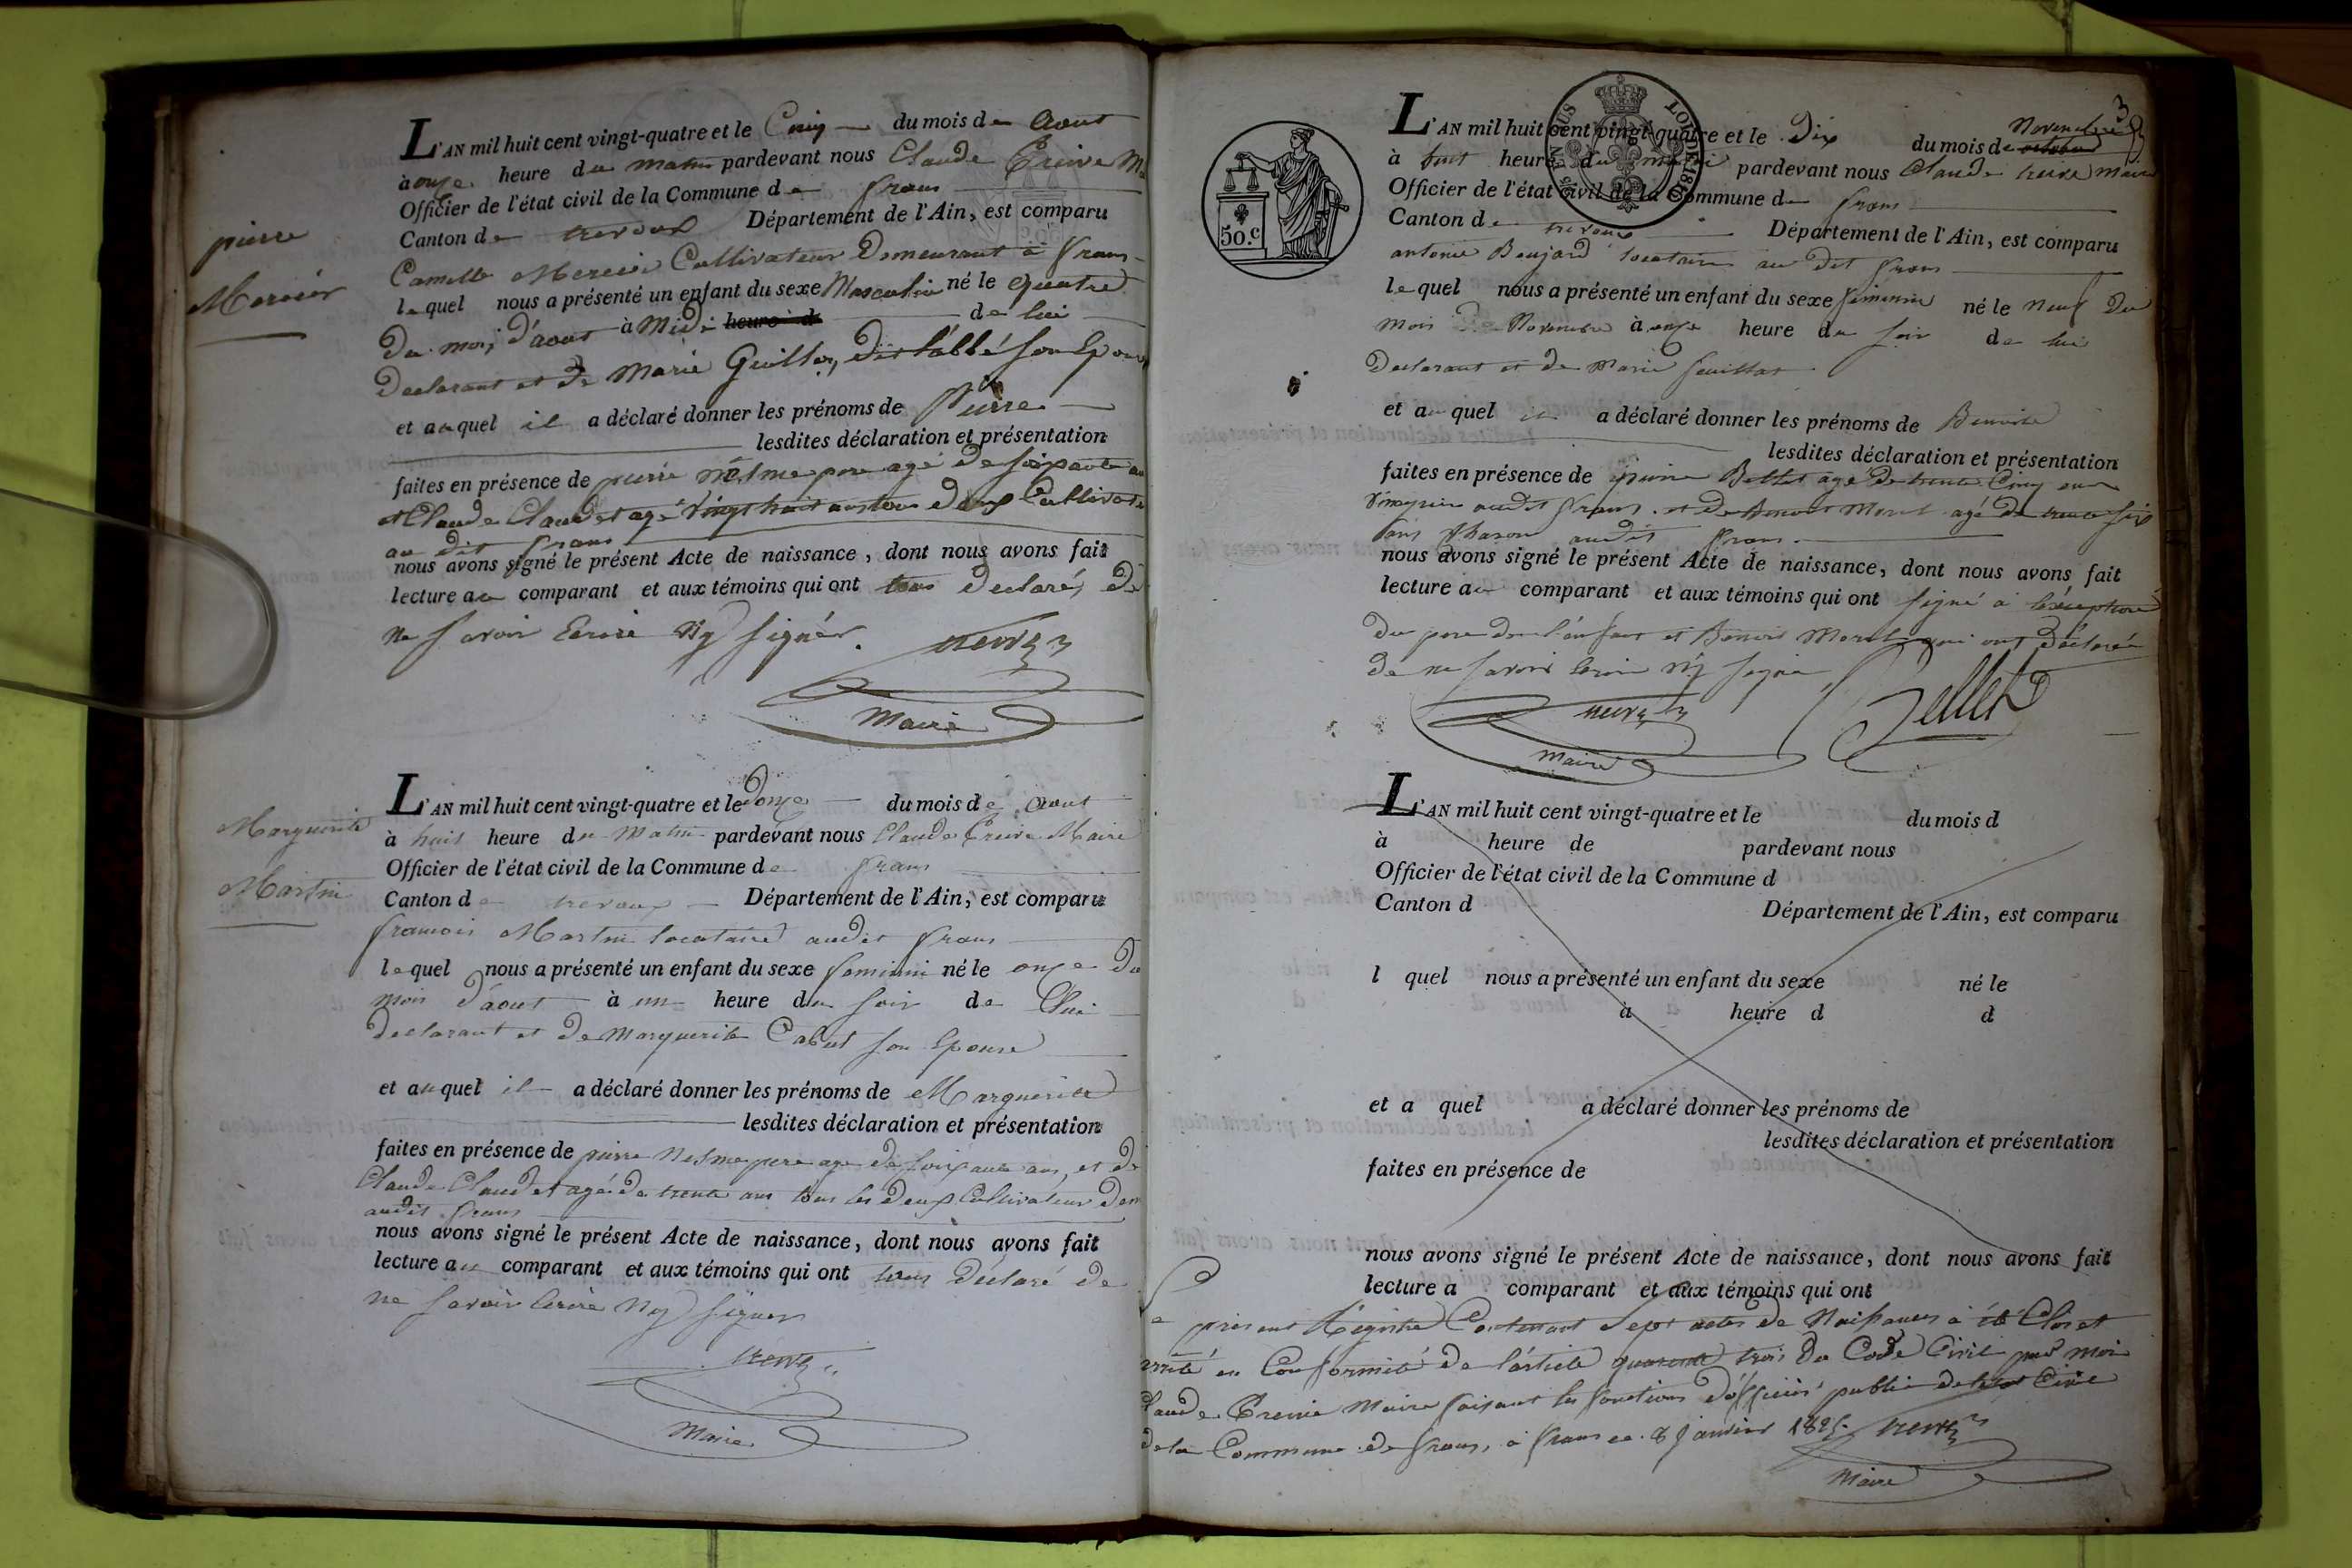 pierre
Mercier
L'AN mil huit cent vingt-quatre et le Cinq du mois de Aout
à onze heure du matin pardevant nous Claude Creive
Officier de l'état civil de la Commune de frans
Canton de trevoux Département de l'Ain, est comparu
Camille Mercier Cultivateur Demeurant à frans
lequel nous a présenté un enfant du sexe Masculin né le quatre
du mois d'aout à Midi heure d de lui
declarant et de Marie Guillon, dit l'abbé son
et auquel il a déclaré donner les prénoms de Pierre
lesdites déclaration et présentation
faites en présence de pierre nesme pere agé de soixante
et Claude Claudet agé vingt huit ans tous deux
au dit frans
nous avons signé le présent Acte de naissance, dont nous avons fait
lecture au comparant et aux témoins qui ont tous declarés de
ne savoir Ecrire Ny signér.
Maire
Marguerite
Martin
L'AN mil huit cent vingt-quatre et le douze du mois de aout
à huit heure du matin pardevant nous Claude Creive Maire
Officier de l'état civil de la Commune de frans
Canton de trevoux Département de l'Ain, est comparu
francois Martin locataire audit frans
lequel nous a présenté un enfant du sexe feminin né le onze du
mois d'aout à un heure du soir de lui
declarant et de Marguerite Cabut son Epouse
et auquel il a déclaré donner les prénoms de Marguerite
lesdites déclaration et présentation
faites en présence de pierre nesme pere age de soixante ans, et de
Claude Claudet agé de trente ans tous les deux Cultivateur
audit frans
nous avons signé le présent Acte de naissance, dont nous avons fait
lecture au comparant et aux témoins qui ont tous déclaré de
ne savoir Ecrire Ny signer
Maire
3
50.c
LOI DE 1816
L'AN mil huit cent vingt-quatre et le Dix du mois de octobre Novembre
à huit heure du matin pardevant nous Claude Creive maire
Officier de l'état civil de la Commune de frans
Canton de trevoux Département de l'Ain, est comparu
antoine Beujard locataire au dit frans
lequel nous a présenté un enfant du sexe feminin né le neuf du
mois de Novembre à onze heure du soir de lui
declarant et de Marie
et auquel il a déclaré donner les prénoms de Benoite
lesdites déclaration et présentation
faites en présence de pierre Bellet agé de trente Cinq ans
vigneron audit frans. et de Benoit Morel agé de trente six
ans audit frans.
nous avons signé le présent Acte de naissance, dont nous avons fait
lecture au comparant et aux témoins qui ont signé à l'exception
du pere de l'enfant et Benoit Morel qui ont déclarés
de ne savoir Ecrire ny signer
Bellet
Maire
L'AN mil huit cent vingt-quatre et le du mois d
à heure de pardevant nous
Officier de l'état civil de la Commune d
Canton d Département de l'Ain, est comparu
l quel nous a présenté un enfant du sexe né le
à heure d d
et a quel a déclaré donner les prénoms de
lesdites déclaration et présentation
faites en présence de
nous avons signé le présent Acte de naissance, dont nous avons fait
lecture a comparant et aux témoins qui ont
Le present Régistre Contenant sept actes de Naissances à été Clos et
arrêté en Conformité de l'article quarante trois du Code Civil par moi
Claude Creive Maire faisant les fonctions d'officier public de letat Civil
de la Commune de frans, à frans ce 8 janvier 1825.
Maire